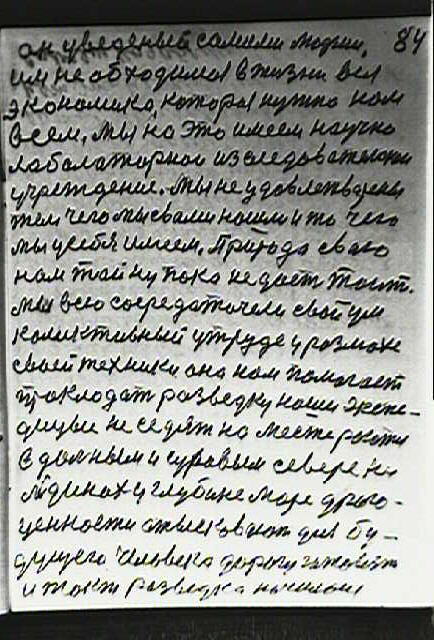 он уведеный самими людми, 84
им не обходимоя в жизни вся
экономика, которая нужно нам
всем, мы на это имеем научно
лабалаторнои изследователскии
учреждение. Мы не удовлетворены
тем чего мы свами нашли и то чего
мы усебя имеем. Природа сваю
нам тайну пока не дает таит.
мы всю сосредаточели свой ум
колективный утруде у размахе
своей техники она нам помогает
прокладат разведку наши экспе-
дицыи не седят на месте работи
в далным и суровым севере на
лдинах и глубине море драго-
ценности атыскавают для бу-
дущего человека дорогу
и такт разведка